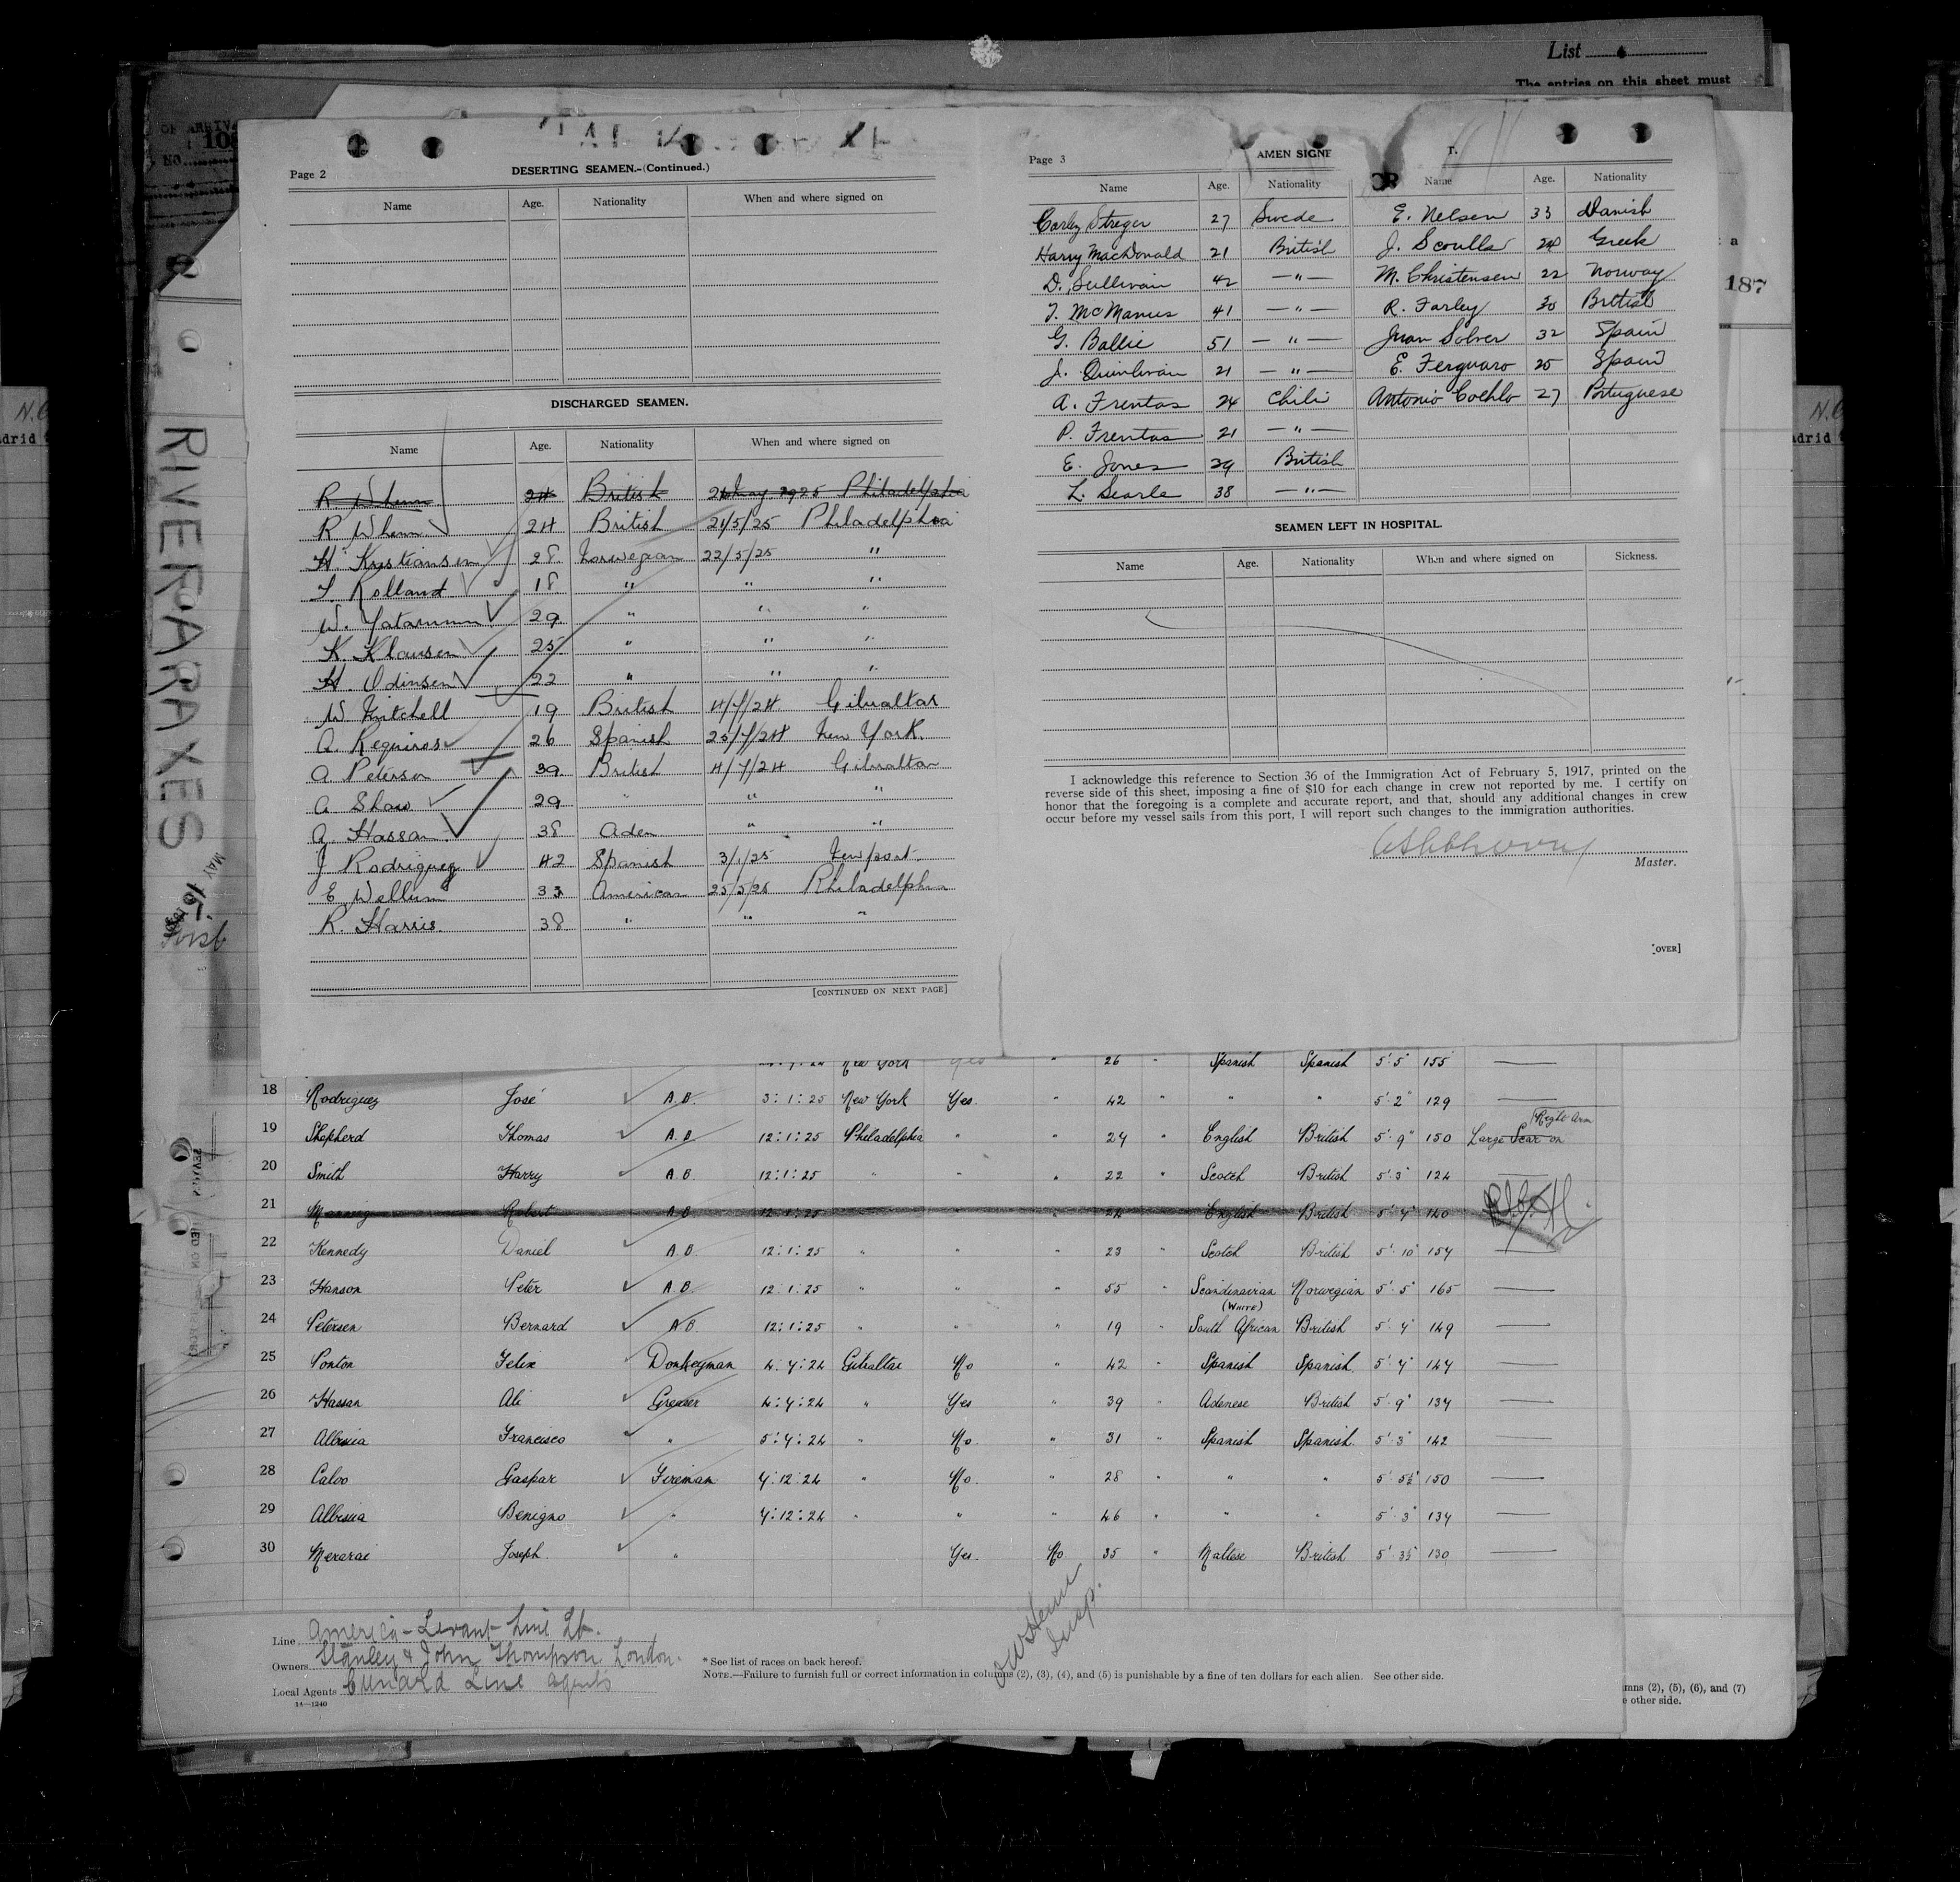 List
The entries on this sheet must
Page 2
DESERTING SEAMEN.-(Continued.)
Name Age. Nationality When and where signed on
DISCHARGED SEAMEN.
Name Age. Nationality When and where signed on
R Whenn 24 British 21 May 1925 Philadelphia
R Whenn 24 British 21/5/25 Philadelphia
H. Kristiansen 28 Norwegian 22/5/25 "
T. Rolland 18 " " "
W. 29 " " "
K. Klausen 25 " " "
H. Odinsen 22 " " "
W. Mitchell 19 British 4/7/24 Gibraltar
A. Requiros 26 Spanish 25/7/24 New York.
A Peterson 39 British 4/7/24 Gibraltar
A Shaw 29 " " "
A. Hassan 38 Aden " "
J Rodriguez 42 Spanish 3/1/25 Newport.
E Wellum 33 American 25/5/25 Philadelphia
R. Harris. 38 " " "
[CONTINUED ON NEXT PAGE]
Page 3
AMEN SIGNE T.
Name Age. Nationality OR Name Age. Nationality
Carley Streger 27 Swede E. Nelsen 33 Danish
Harry MacDonald 21 British J. Scoulls 24 Greek
D. Sullivan 42 — " — M. Christensen 22 Norway
T. McManus 41 — " — R. Farley 30 British
G. Ballie 51 — " — Juan Solver 32 Spain
J. Quinlivan 21 — " — E. Ferguaro 25 Spain
A. Frentas 24 Chili Antonio Coehlo 27 Portuguese
P. Frentas 21 — " —
E. Jones 29 British
L. Searle 38 — " —
SEAMEN LEFT IN HOSPITAL.
Name Age. Nationality When and where signed on Sickness.
I acknowledge this reference to Section 36 of the Immigration Act of February 5, 1917, printed on the
reverse side of this sheet, imposing a fine of $10 for each change in crew not reported by me. I certify on
honor that the foregoing is a complete and accurate report, and that, should any additional changes in crew
occur before my vessel sails from this port, I will report such changes to the immigration authorities.
Master.
[OVER]
187
RIVER ARAXES
MAY 16
New York Yes " 26 " Spanish Spanish 5' 5" 155
18 Rodriguez José A.B. 3:1:25 New York Yes. " 42 " " " 5' 2" 129
19 Shepherd Thomas A.B 12:1:25 Philadelphia " " 24 " English British 5' 9" 150 Large Scar on Right Arm
20 Smith Harry A.B. 12:1:25 " " " 22 " Scotch British 5' 3" 124
21 Robert A.B. 12:1:25 " " " 24 " English British 5' 4" 140
22 Kennedy Daniel A.B. 12:1:25 " " " 23 " Scotch British 5' 10" 154
23 Hanson Peter A.B. 12:1:25 " " " 55 " Scandinavian Norwegian 5' 5" 165
24 Petersen Bernard A.B. 12:1:25 " " " 19 " (WHITE) South African British 5' 4" 149
25 Ponton Felix Donkeyman 4:4:24 Gibraltar No " 42 " Spanish Spanish. 5' 4" 144
26 Hassan Ali Greaser 4:4:24 " Yes " 39 " Adenese British 5' 9" 134
27 Albisua Francisco " 5:4:24 " No. " 31 " Spanish Spanish. 5' 3" 142
28 Calvo Gaspar Fireman 4:12:24 " No. " 28 " " " 5' 5½" 150
29 Albisua Benigno " 4:12:24 " " " 46 " " " 5' 3" 134
30 Joseph " Yes. No 35 " Maltese British 5' 3½" 130
Line America-Levant Line Lt.
Owners Stanley & John Thompson, London.
Local Agents Cunard Line Agents
14—1240
* See list of races on back hereof.
NOTE.—Failure to furnish full or correct information in columns (2), (3), (4), and (5) is punishable by a fine of ten dollars for each alien. See other side.
Insp.
mns (2), (5), (6), and (7)
e other side.